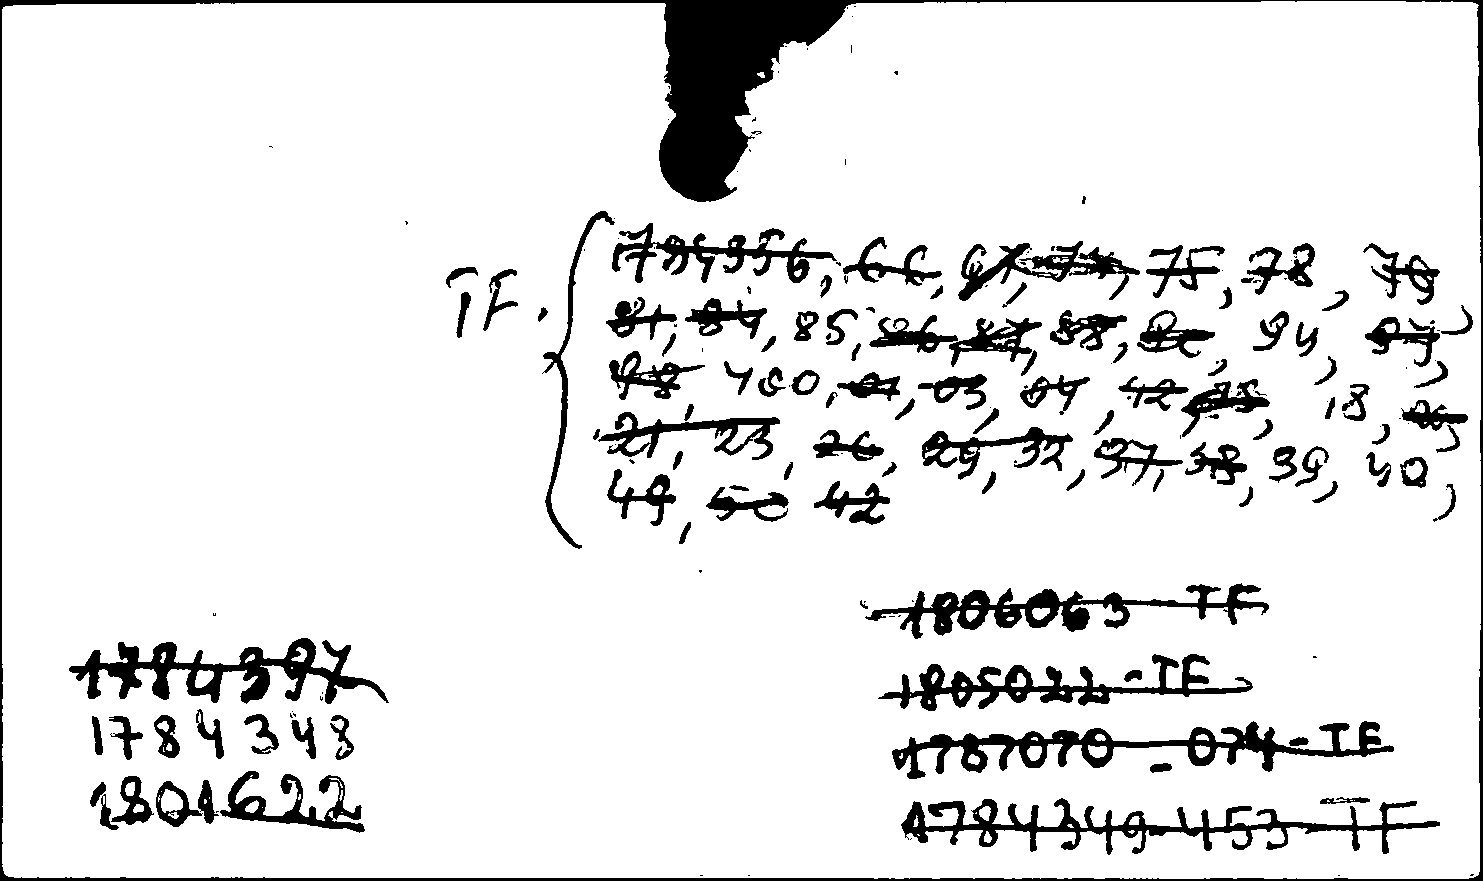 TF. 1784356, 66, 67, 74, 75, 78, 79,
81, 84, 85, 86, 87, 88, 90, 94, 97,
98, 400, 01, 03, 04, 12, 15, 18, 20,
21, 23, 26, 29, 32, 37, 38, 39, 40,
49, 50 42
1806063 - TF
1805022 - TF
1787070 - 074 - TF
1784349 - 453 - TF
1784397
1784348
1801622